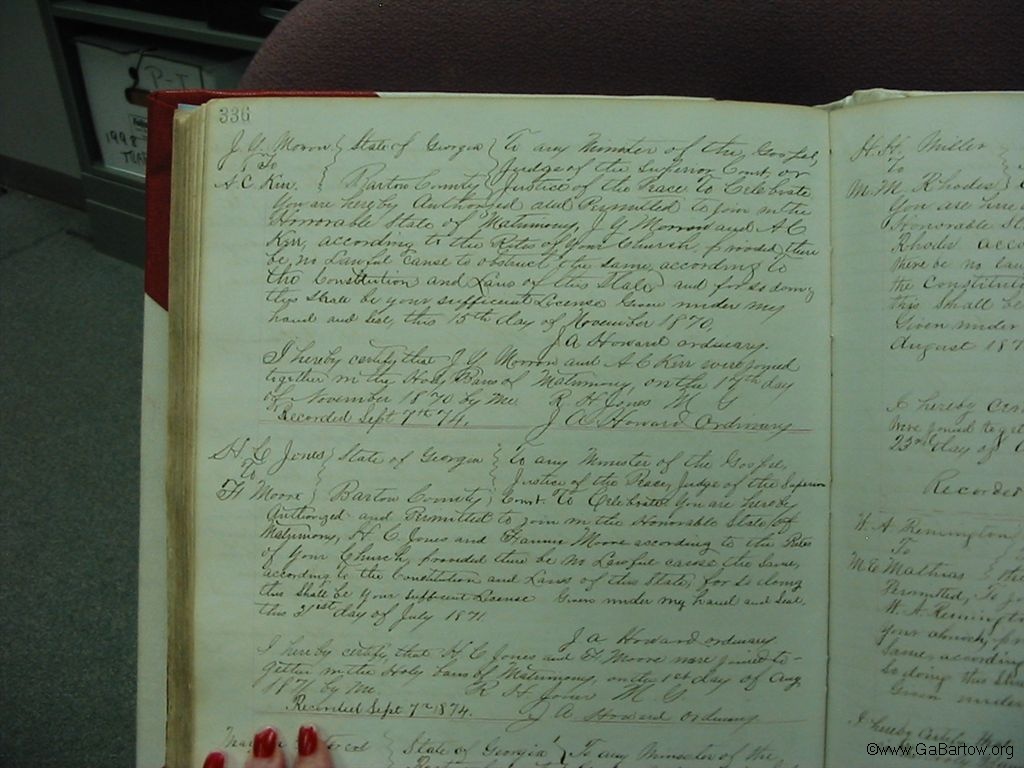 P-T
1998
336
J. Y. Morrow } State of Georgia } To any Minister of the Gospel,
To Judge of the Superior Court, or
A C Kerr. } Bartow County } Justice of the Peace to Celebrate
You are hereby Authorized and Permitted to join in the
Honorable State of Matrimony, J Y Morrow and A C
Kerr, according to the Rites of Your Church, provided there
be no Lawful Cause to obstruct the same, according to
the Constitution and Laws of this State, and for so doing
this shall be your sufficient License Given under my
hand and Seal, this 15th day of November 1870.
J A Howard ordinary.
I hereby certify, that J Y Morrow and A C Kerr were joined
together in the Holy Bans of Matrimony, on the 17th day
of November 1870 by me R H Jones M G
Recorded Sept 7th 74. J A Howard Ordinary
H C Jones } State of Georgia } To any Minister of the Gospel,
To Justice of the Peace, Judge of the Superior
F Moore } Bartow County } Court To Celebrate You are hereby
Authorized and Permitted to join in the Honorable State of
Matrimony, H C Jones and Fannie Moore according to the Rites
of Your Church, provided there be no Lawful cause the same,
according to the Constitution and Laws of this State, for so doing
this shall be Your Sufficient License Given under my hand and Seal.
this 21st day of July 1871
J A Howard ordinary
I hereby certify, that H C Jones and F Moore were joined to-
gether in the Holy bans of Matrimony, on the 1st day of Aug
1871 by me. R H Jones M G
Recorded Sept 7th 1874. J A Howard ordinary
State of Georgia } To any Minister of the
H. H. Miller
To
M. M. Rhodes }
You are here
Honorable St
Rhodes acco
there be no law
the Constitut
this shall be
Given under
August 187
I hereby cer
were joined toget
23rd day of
Recorded
W. A Remington
To
M E Mathias
Permitted, To jo
W. A Remingt
your church, pr
same, according
so doing this Sha
Given under
I hereby certify that
©www.GaBartow.org